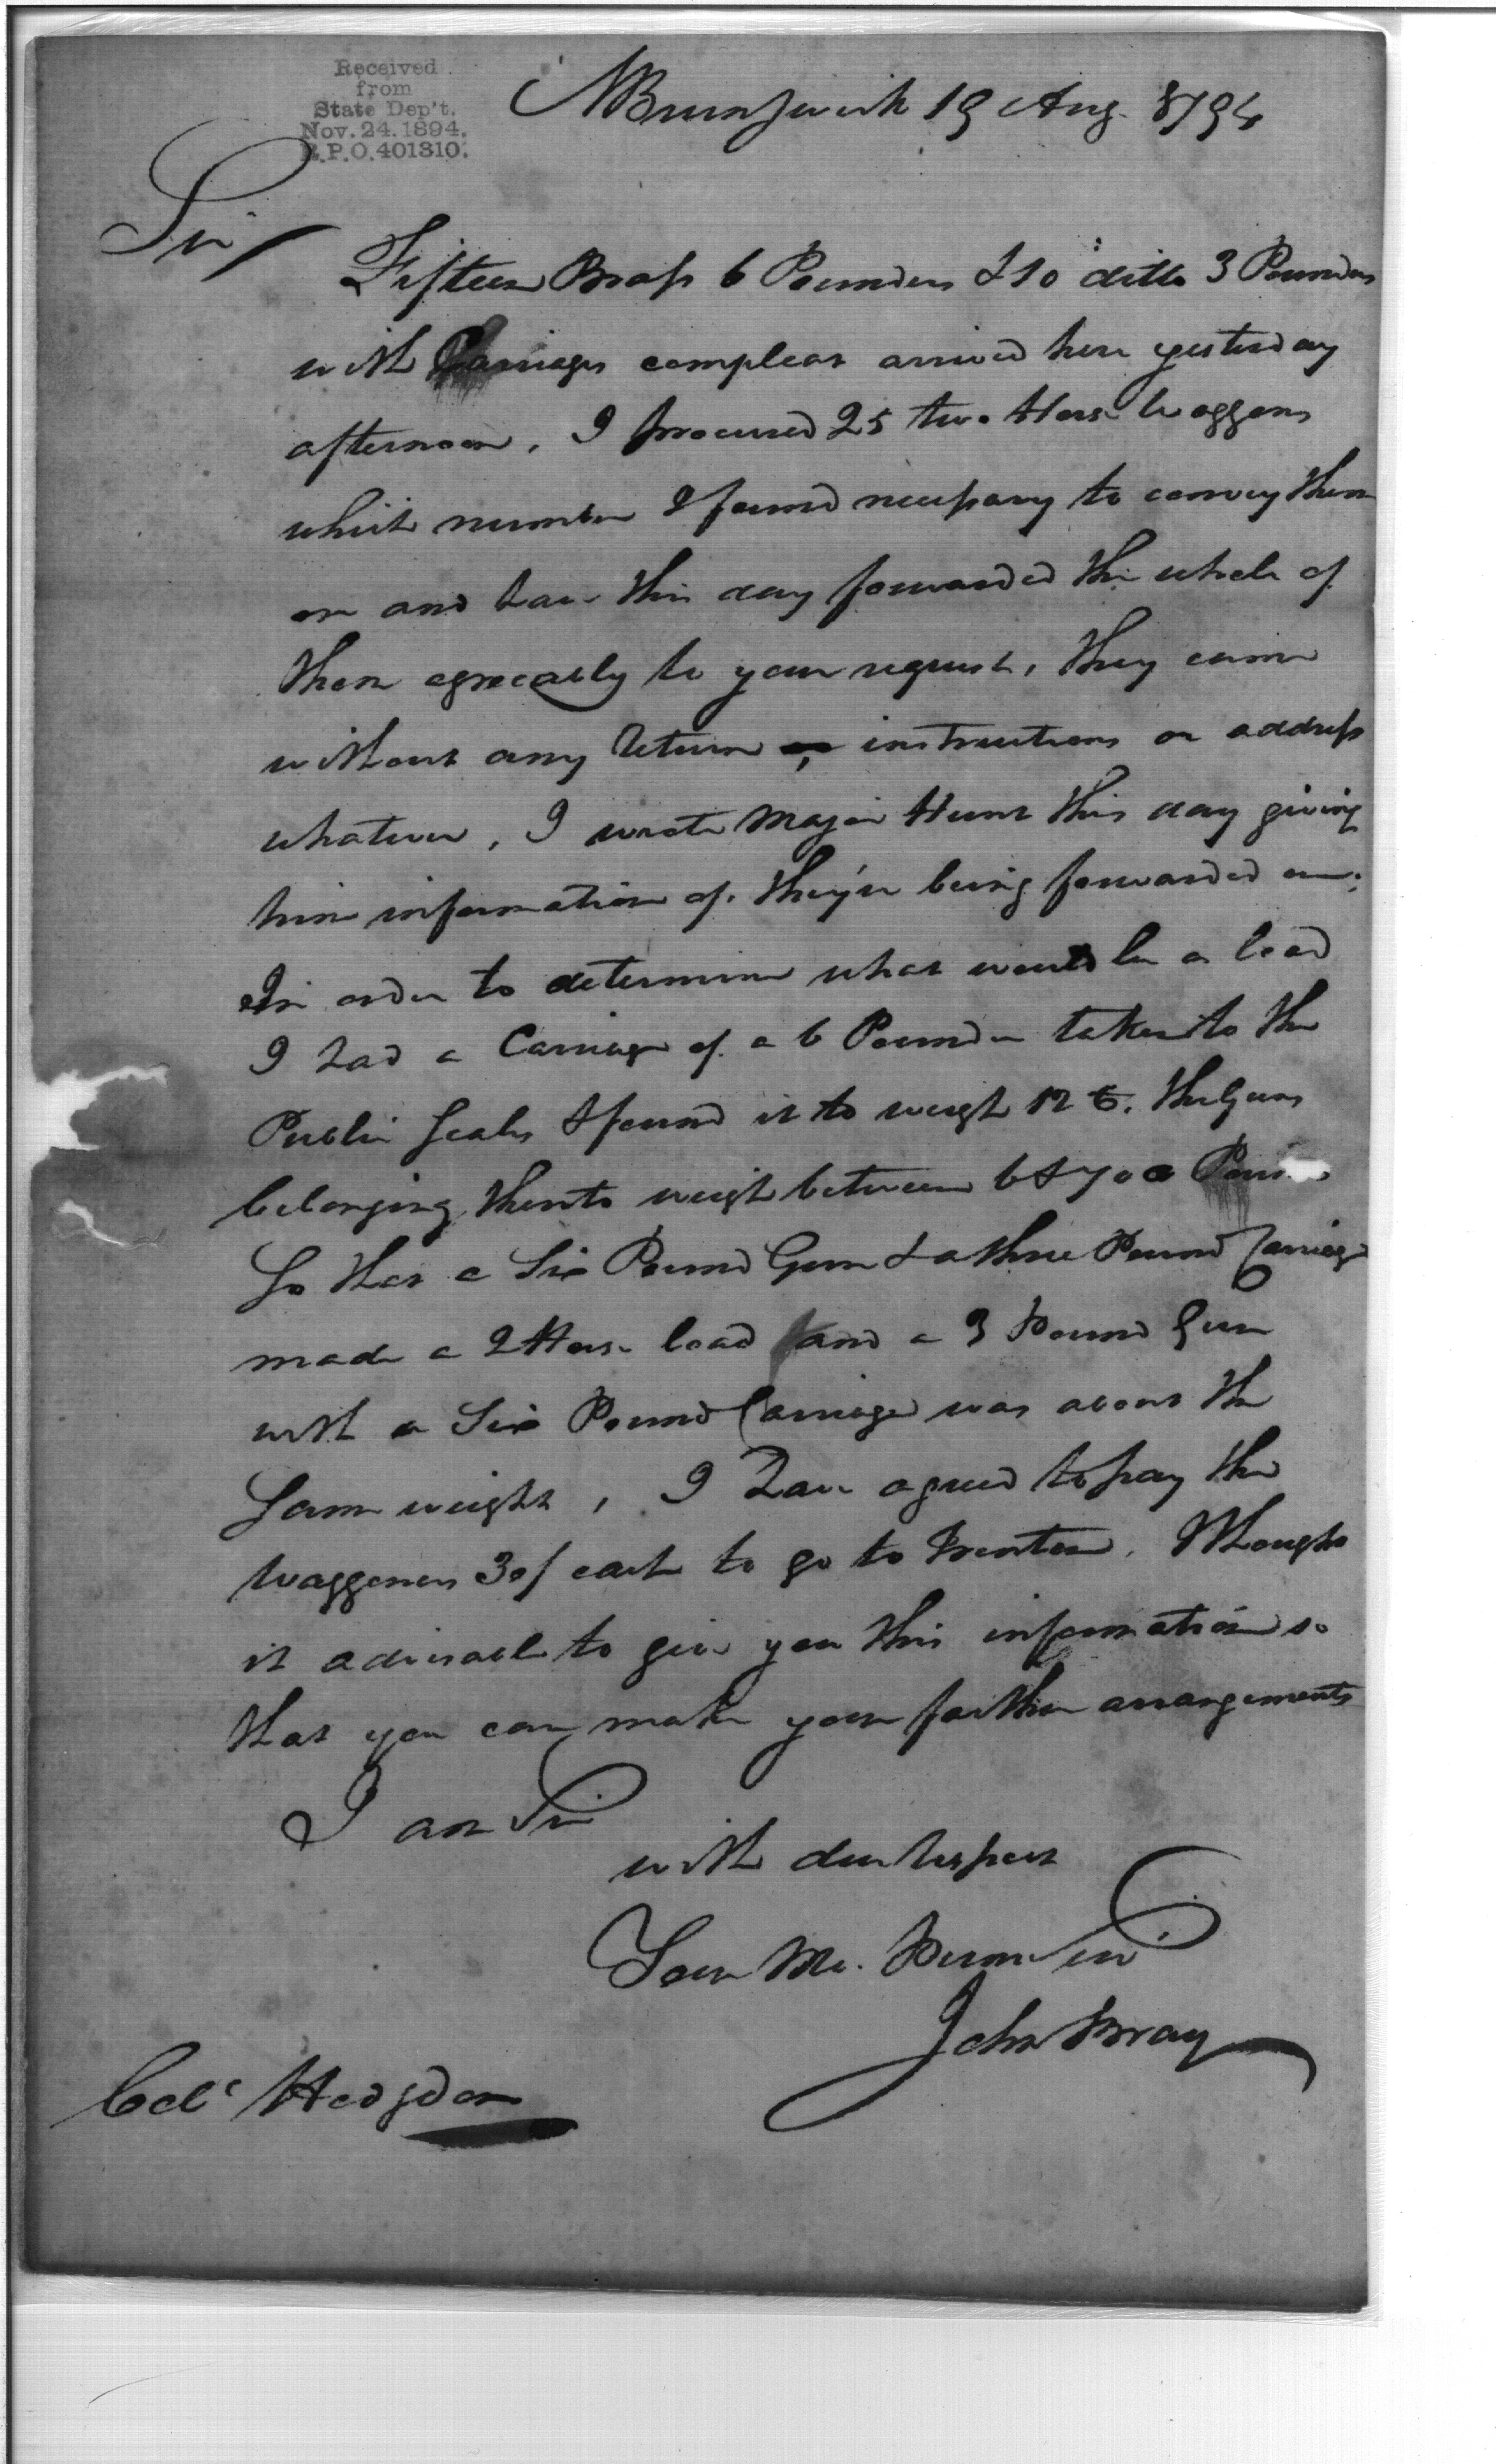 Received
from
State Dep't.
Nov. 24. 1894.
R.P.O. 401310.
NBrunswick 19 Aug. 1794
Sir/
Fifteen Brass 6 Pounders & 10 ditto 3 Pounders
with Carriages compleat arrived here yesterday
afternoon, I procured 25 two Horse Waggons
which number I found necessary to convey them
on and have this day forwarded the whole of
them agreeably to your request, they came
without any Return, instructions or address
whatever, I wrote Major Hunt this day giving
him information of they're being forwarded on;
In order to determine what would be a load
I had a Carriage of a 6 Pounder taken to the
Public Scales & found it to weigh 12 C. The Guns
belonging thereto weigh between 6 & 700 Pounds
So that a Six Pound Gun & a three Pound Carriage
made a 2 Horse load and a 3 Pound Gun
with a Six Pound Carriage was about the
Same weight, I have agreed to pay the
Waggoners 30/ each to go to Trenton. Thought
it adviseable to give you this information so
that you can make your farther arrangements
I am Sir
with due Respect
Your Mo. Humb Serv
John Bray
Colo Hodgdon